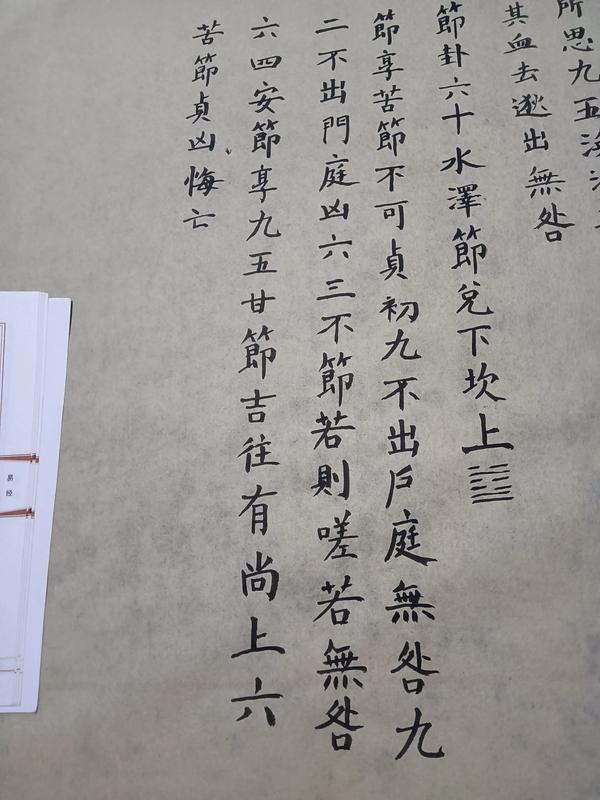 所思九五渙
其血去逖出無咎
節卦六十水澤節兌下坎上
節享苦節不可貞初九不出戶庭無咎九
二不出門庭凶六三不節若則嗟若無咎
六四安節享九五甘節吉往有尚上六
苦節貞凶悔亡
易经